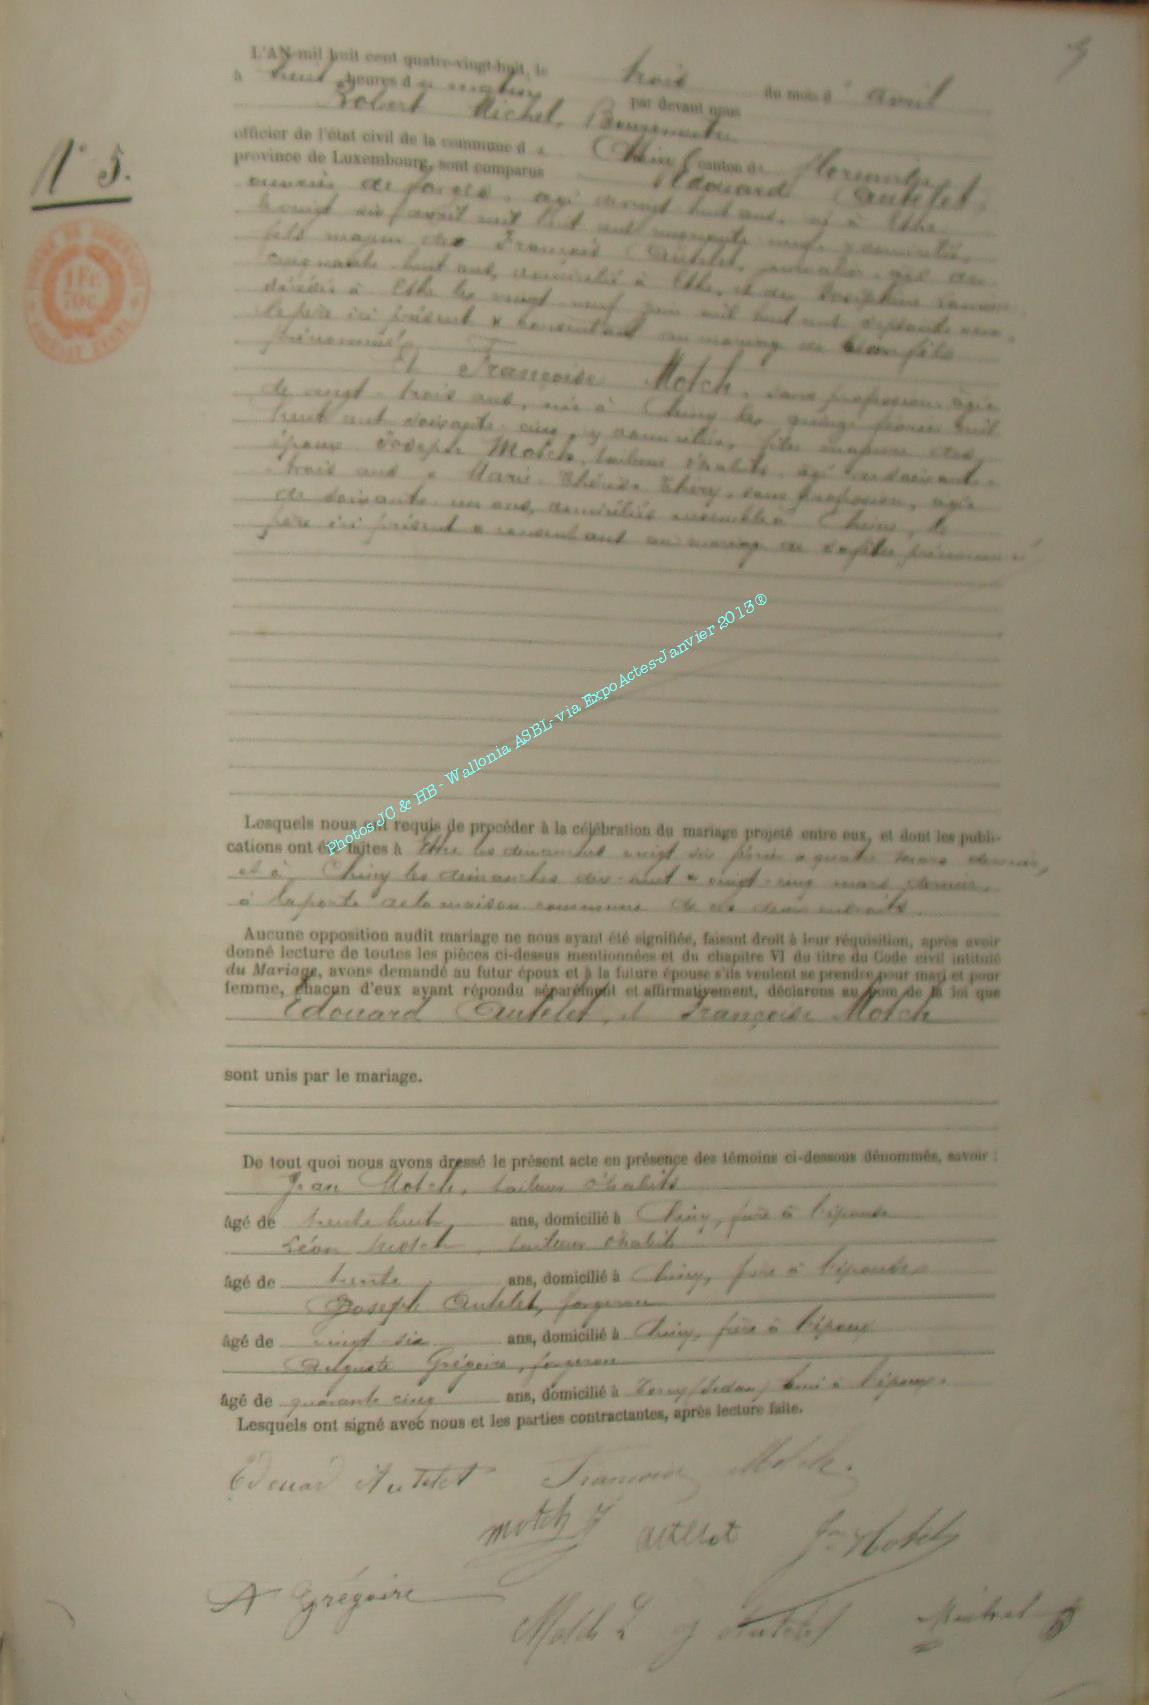 L'AN mil huit cent quatre-vingt-huit, le trois du mois d'avril
à heures d u matin par devant nous
Robert Michel,
officier de l'état civil de la commune d e Chiny canton de Florenville
province de Luxembourg, sont comparus Edouard Autelet,
N° 5.
ouvrier de forges, agé de vingt huit ans, né à Ethe
le vingt six avril mil huit cent cinquante neuf, y domicilié,
fils majeur des François Autelet, agé de
cinquante huit ans, domicilié à Ethe, et de Joséphine
décédée à Ethe le vingt neuf juin mil huit cent septante
le père ici présent & consentant au mariage de son fils
prénommé,
Et Françoise Motch, sans profession, agée
de vingt-trois ans, née à Chiny le quinze février mil
huit cent soixante-cinq, y domiciliée, fille majeure des
époux Joseph Motch, tailleur d'habits, agé de soixante-
trois ans & Marie-Thérèse Thiry, sans profession, agée
de soixante un ans, domiciliés ensemble à Chiny, le
père ici présent & consentant au mariage de sa fille prénommée
1 Fc.
70c.
Photos JC & HB - Wallonia ASBL- via ExpoActes-Janvier 2013®
Lesquels nous ont requis de procéder à la célébration du mariage projeté entre eux, et dont les publi-
cations ont été faites à Ethe les dimanches vingt six février & quatre mars dernier,
et à Chiny les dimanches dix-huit & vingt-cinq mars dernier,
à la porte de la maison commune de ces deux endroits.
Aucune opposition audit mariage ne nous ayant été signifiée, faisant droit à leur réquisition, après avoir
donné lecture de toutes les pièces ci-dessus mentionnées et du chapitre VI du titre du Code civil intitulé
du Mariage, avons demandé au futur époux et à la future épouse s'ils veulent se prendre pour mari et pour
femme, chacun d'eux ayant répondu séparément et affirmativement, déclarons au nom de la loi que
Edouard Autelet, et Françoise Motch
sont unis par le mariage.
De tout quoi nous avons dressé le présent acte en présence des témoins ci-dessous dénommés, savoir :
Jean Motch, tailleur d'habits
âgé de trente huit, ans, domicilié à Chiny, frère à l'épouse
Léon Motch, tailleur d'habits
âgé de trente, ans, domicilié à Chiny, frère à l'épouse
Joseph Autelet, forgeron
âgé de vingt six ans, domicilié à Chiny, frère à l'époux
Auguste Grégoire, forgeron
âgé de quarante cinq ans, domicilié à (Sedan) ami à l'époux.
Lesquels ont signé avec nous et les parties contractantes, après lecture faite.
Edouard Autelet Françoise Motch.
motch J autelet Jn Motch
A Grégoire
Motch L J Autelet Michel